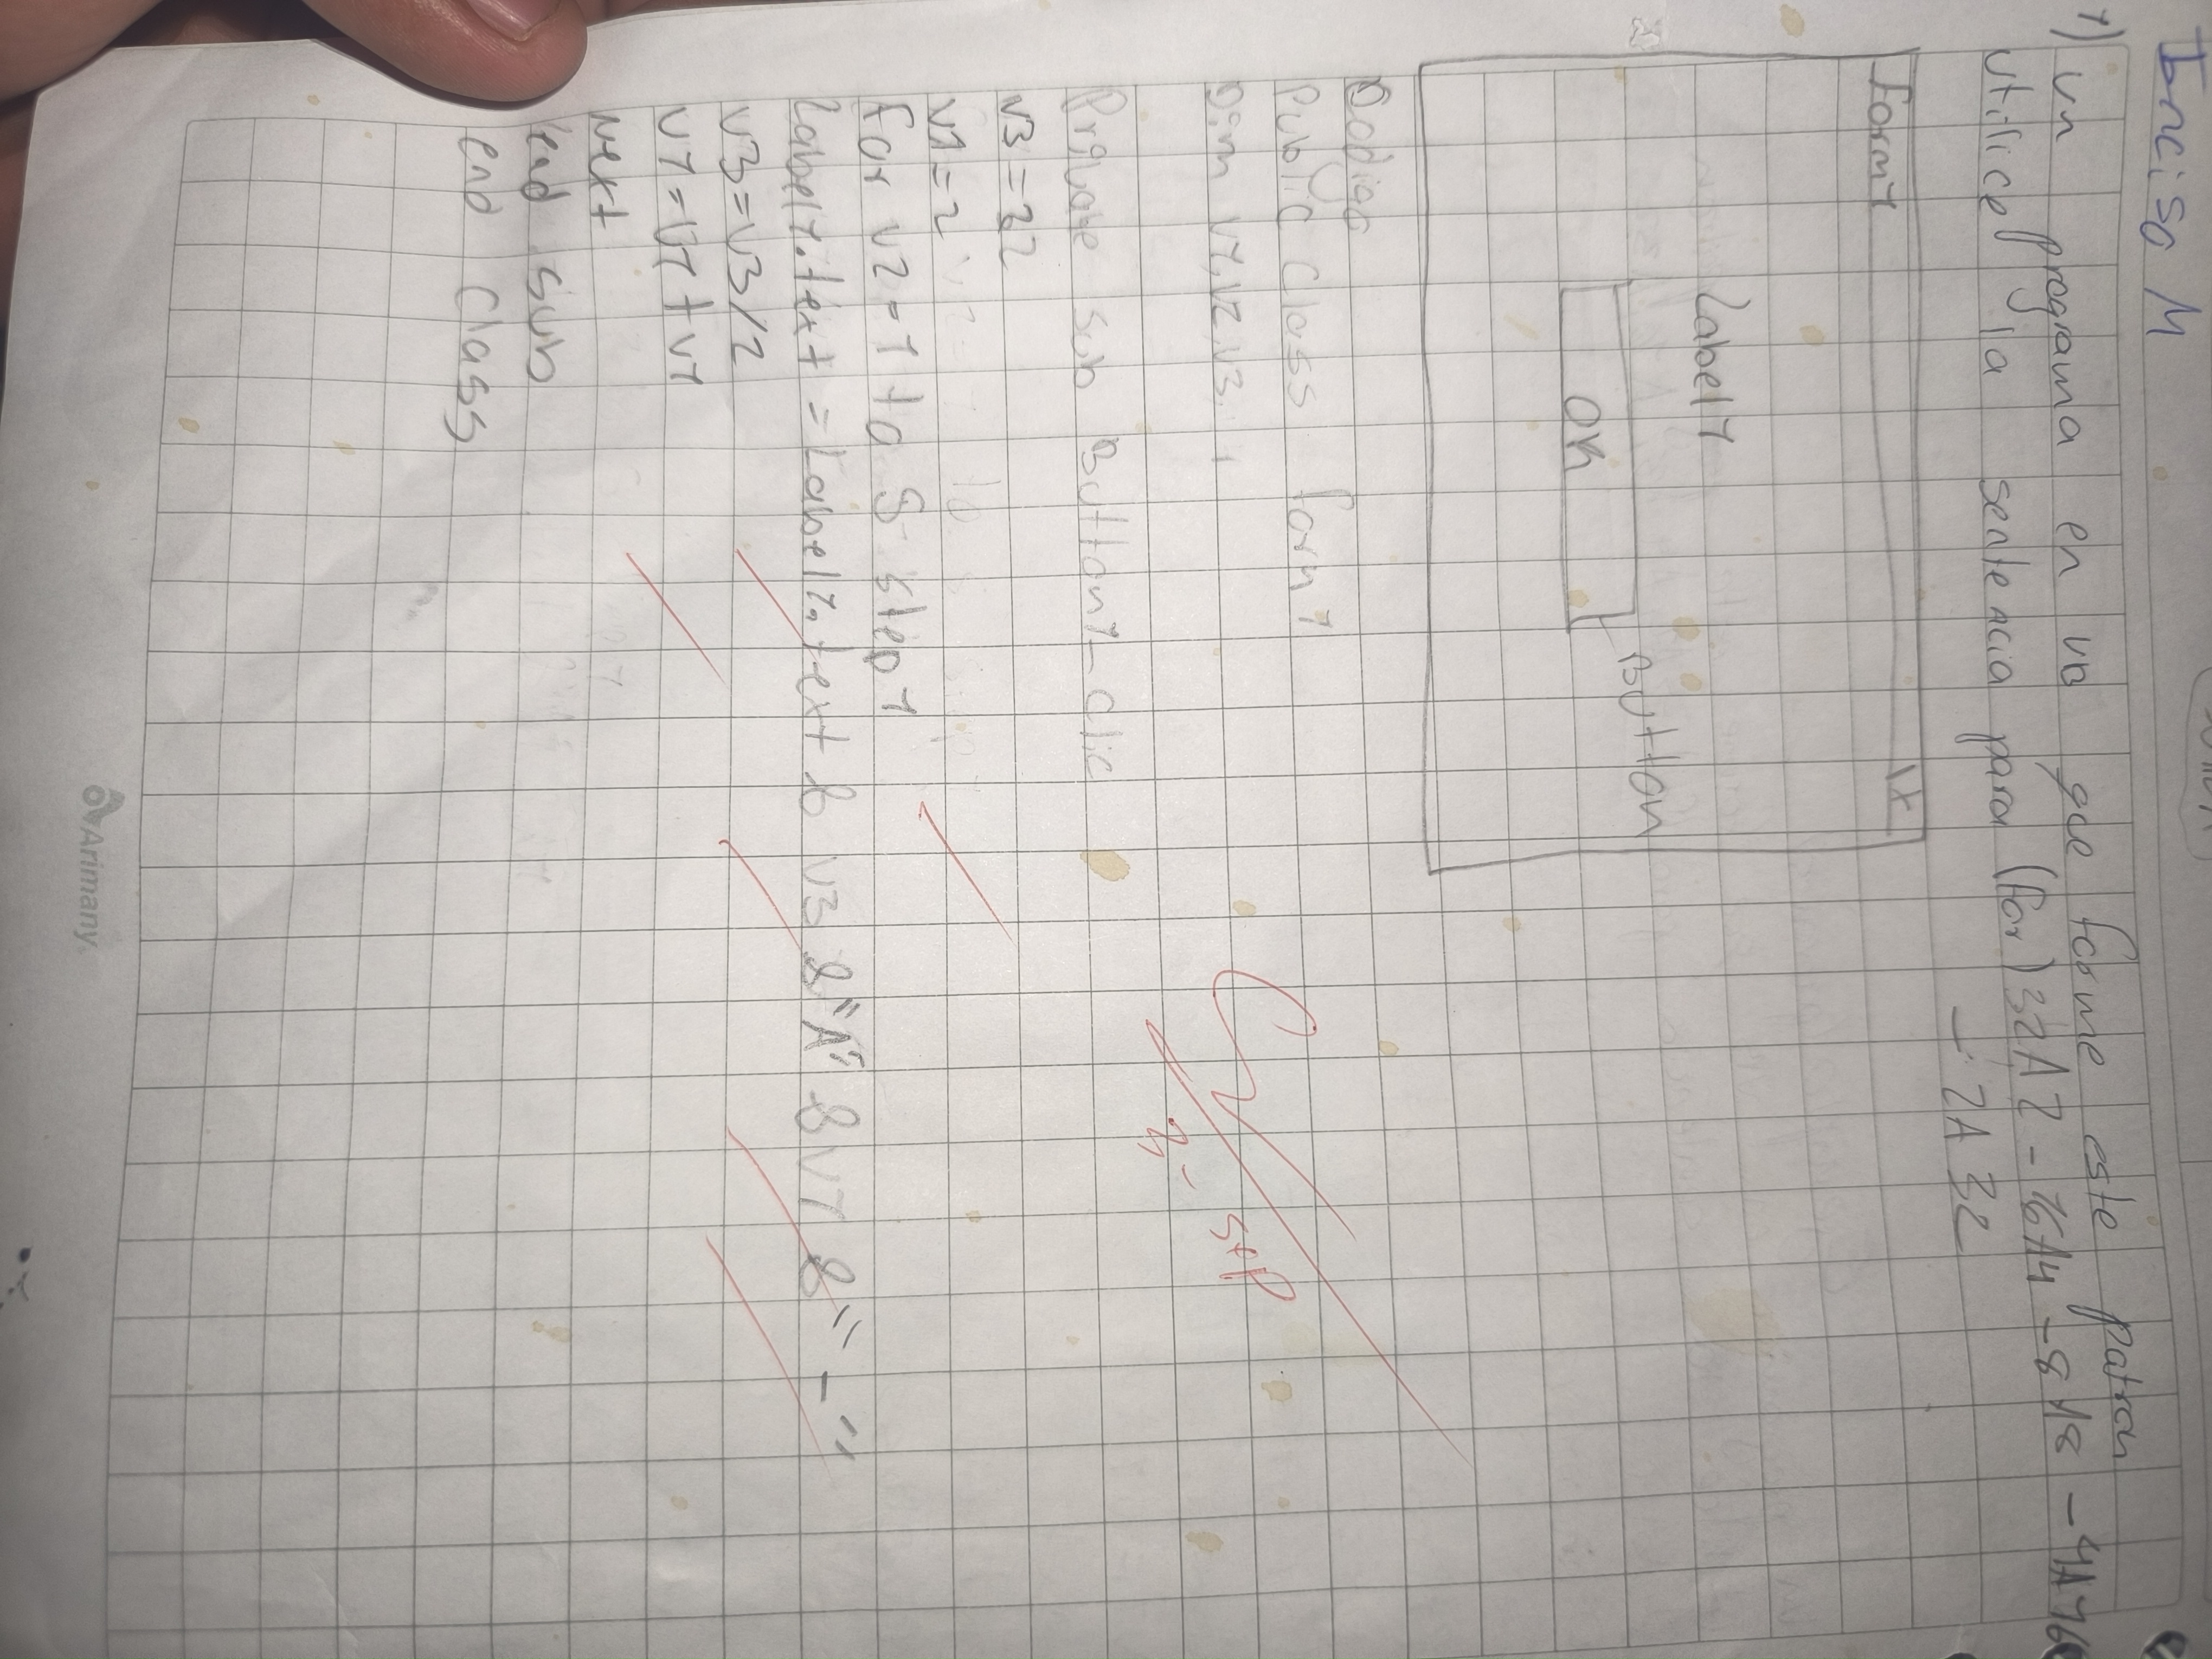 Inciso M
1) un programa en vb que forme este patron
utilice la sentencia para (for) 32A2 - 16A4 - 8A8 - 4A16
- 2A32
form1 X
Label1
OK
Button
Codigo
Public Class form1
Dim v1,v2,v3
Private Sub Button1_Clic
v3=32
v1=2
for v2=1 to 5 step1
Label1.text=Label1.text & v3 &"A" &v1 &"-"
v3=v3/2
v1=v1+v1
Next
end Sub
end Class
Pts
Arimany